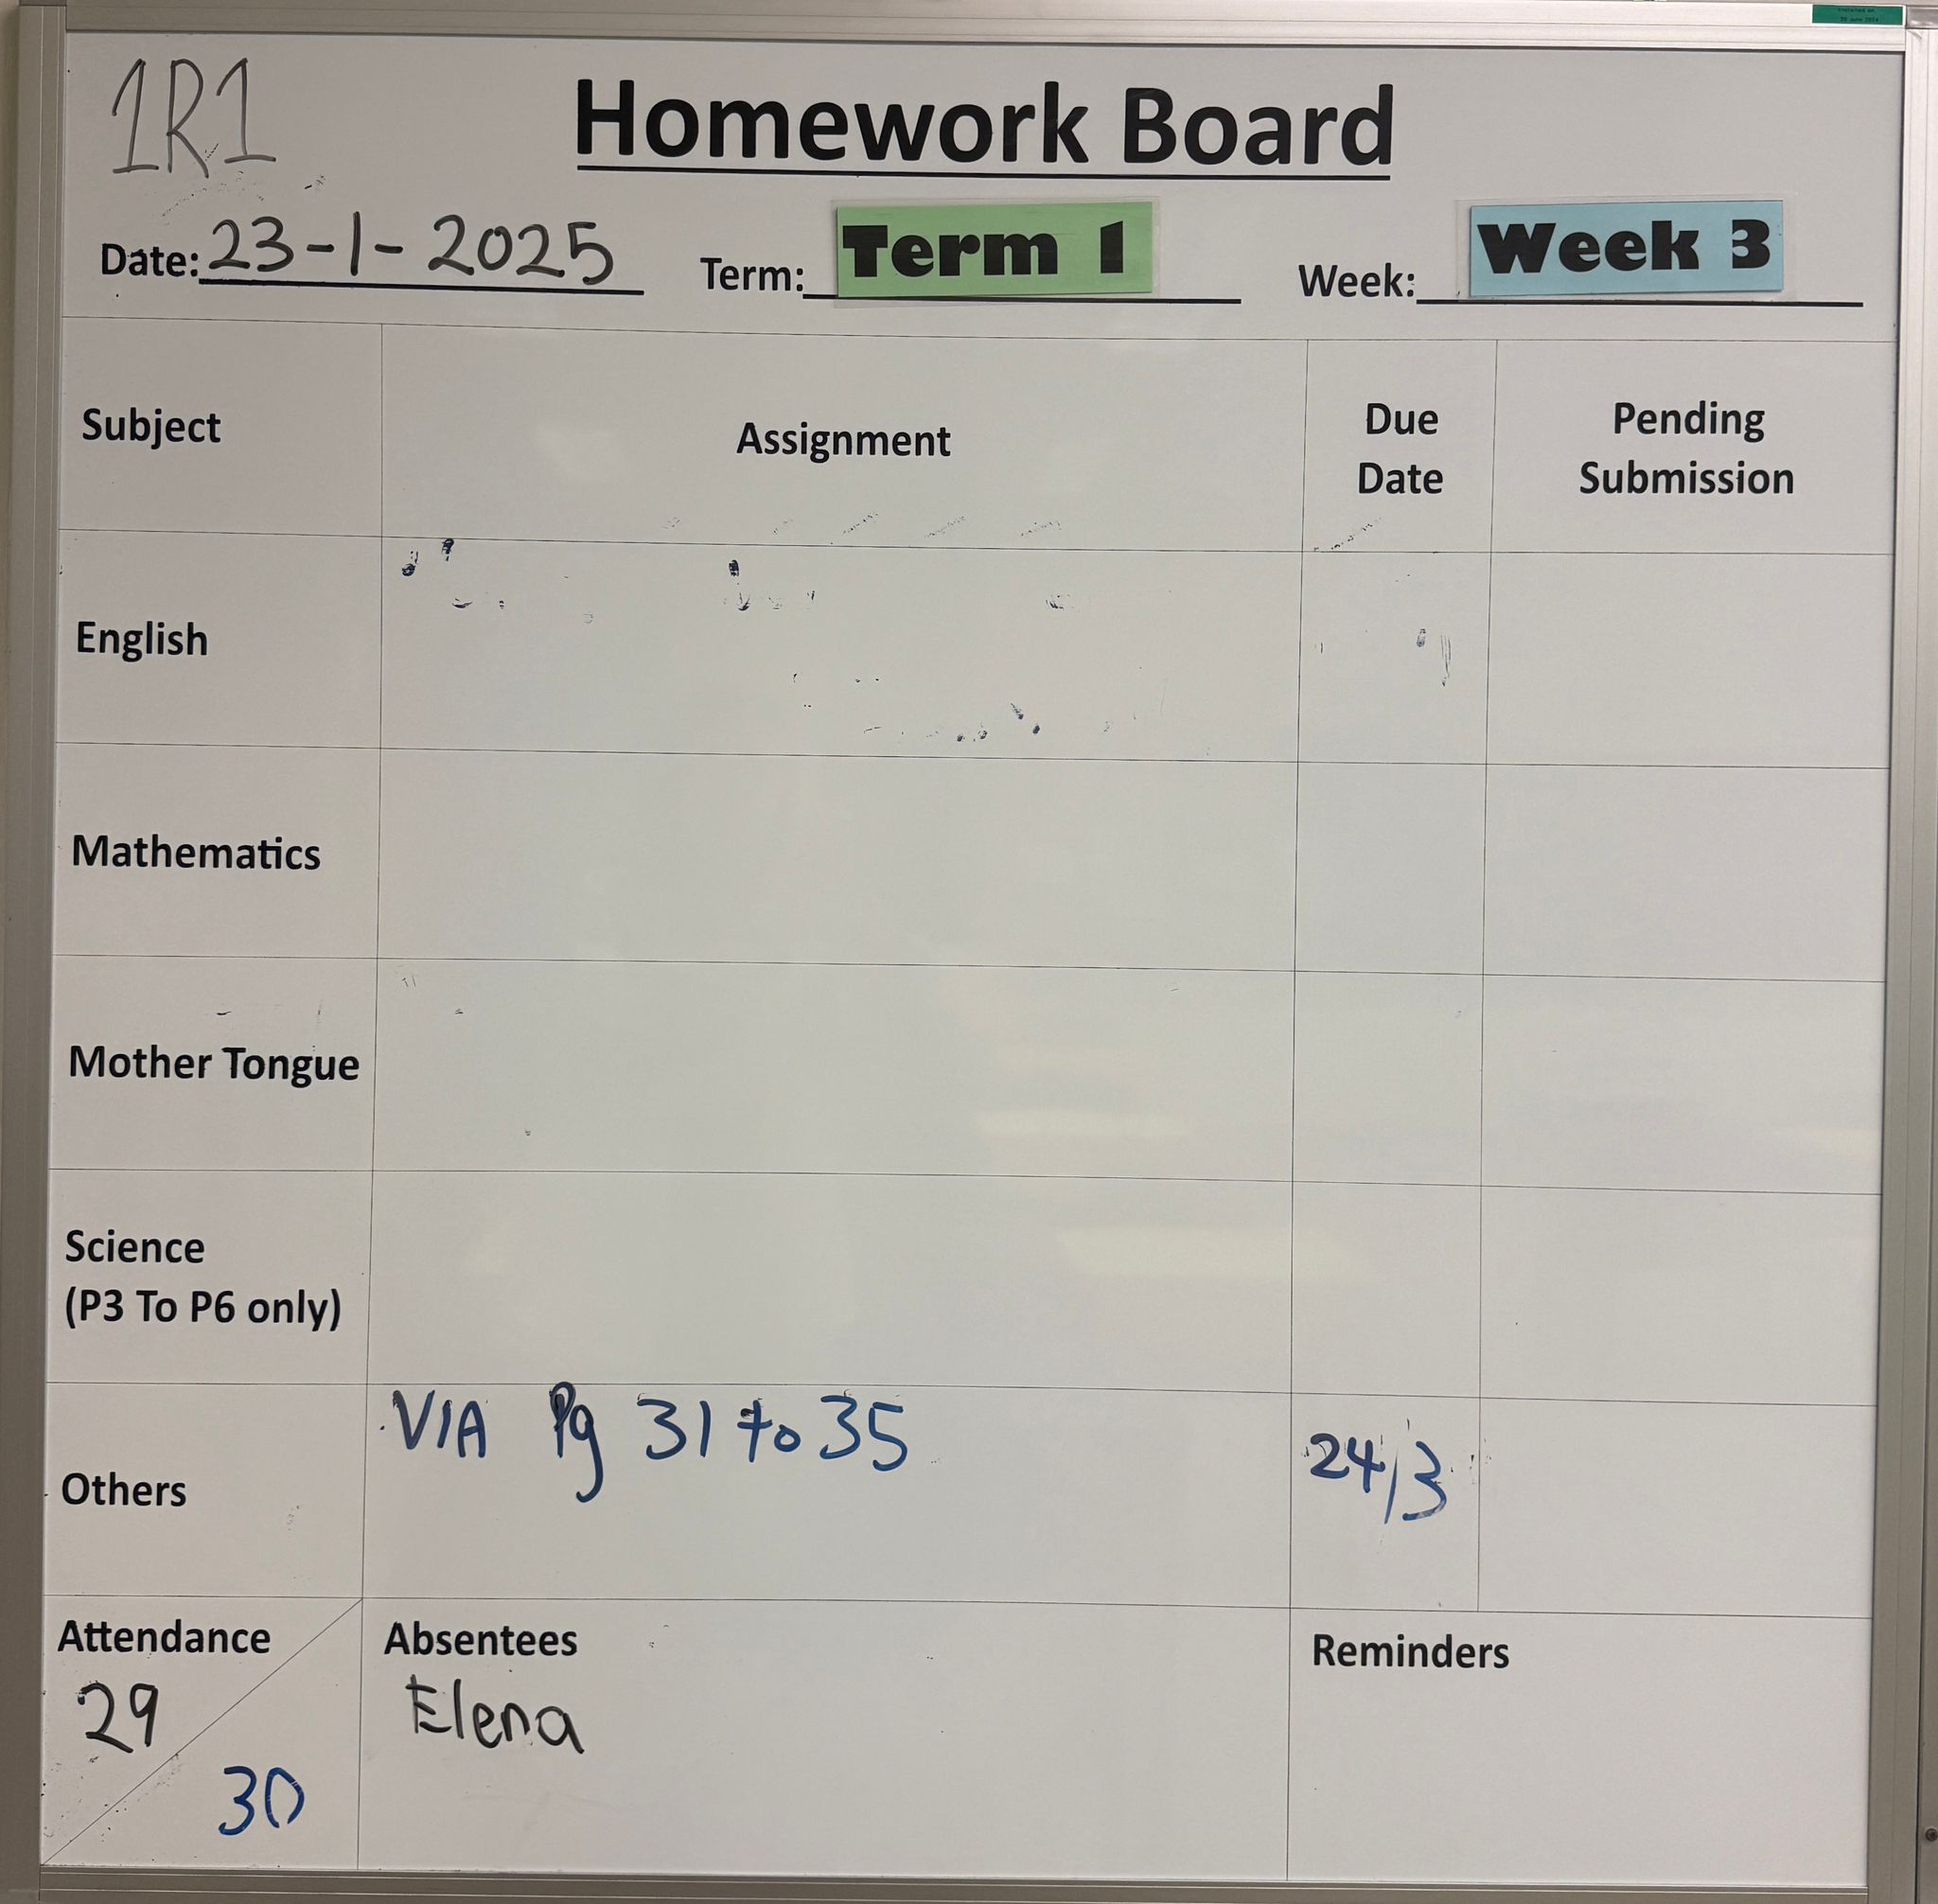 1R1
Homework Board
Date: 23-1-2025 Term: Term 1 Week: Week 3
Subject Assignment Due Date Pending Submission
English
Mathematics
Mother Tongue
Science
(P3 To P6 only)
Others VIA Pg 31 to 35 24/3
Attendance Absentees Reminders
29 Elena
30